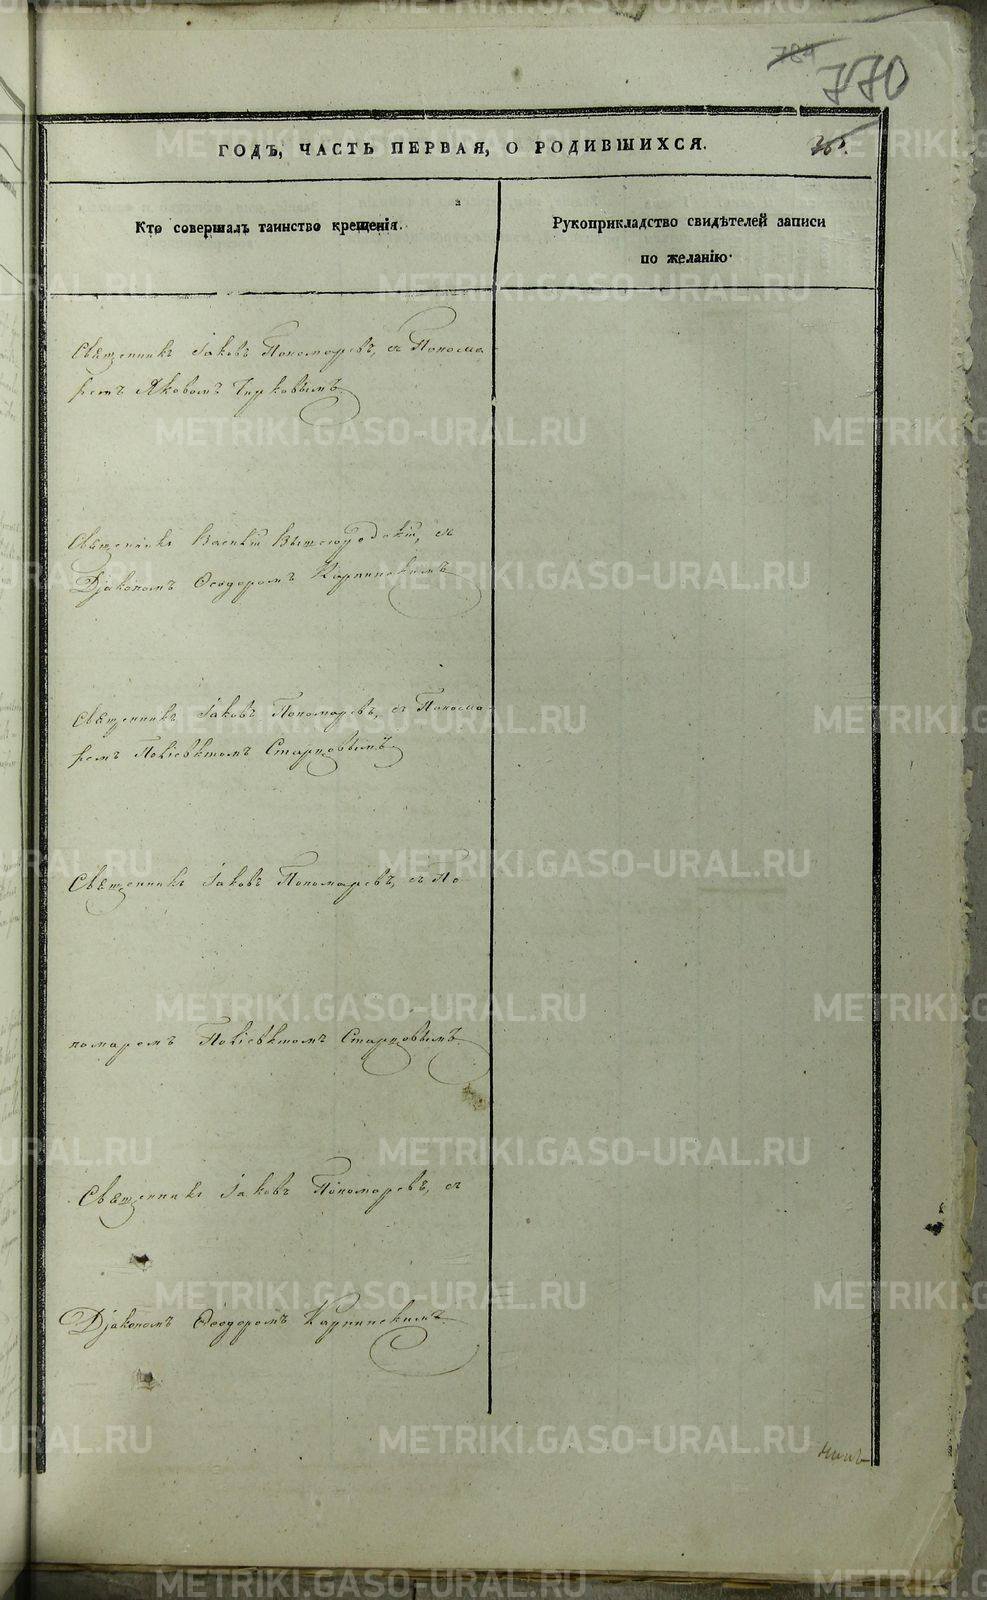 784
770
ГОДЪ, ЧАСТЬ ПЕРВАЯ, О РОДИВШИХСЯ.
Кто совершалъ таинство крещенія.
Рукоприкладство свидѣтелей записи
по желанію.
Священникъ Іаковъ Пономаревъ, съ Понома-
ремъ Яковомъ Чирковымъ
Священникъ Василій Вышегородскій, съ
Діакономъ Ѳеодоромъ Карпинскимъ
Священникъ Іаковъ Пономаревъ, съ Понома-
ремъ Поліевктомъ Старцовымъ
Священникъ Іаковъ Пономаревъ, съ По-
номаремъ Поліевктомъ Старцовымъ
Священникъ Іаковъ Пономаревъ, съ
Діакономъ Ѳеодоромъ Карпинскимъ
METRIKI.GASO-URAL.RU